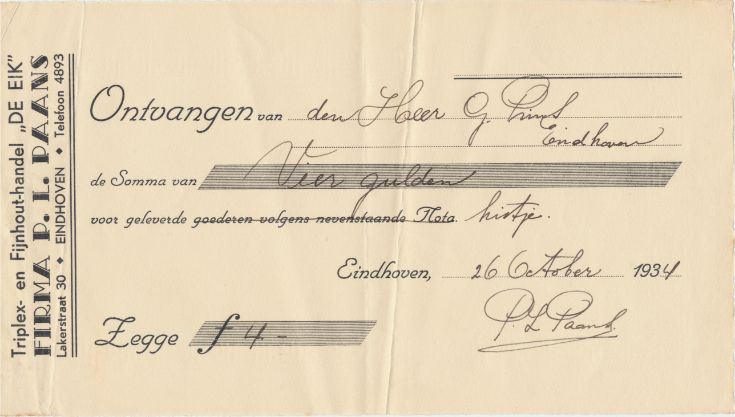 Triplex- en Fijnhout-handel „DE EIK"
FIRMA P. L. PAANS
Lakerstraat 30 ♦ EINDHOVEN ♦ Telefoon 4893
Ontvangen van den Heer G. Prins
Eindhoven
de Somma van Vier gulden
voor geleverde goederen volgens nevenstaande Nota. kistje.
Eindhoven, 26 October 1934
P. L. Paans.
Zegge f 4-